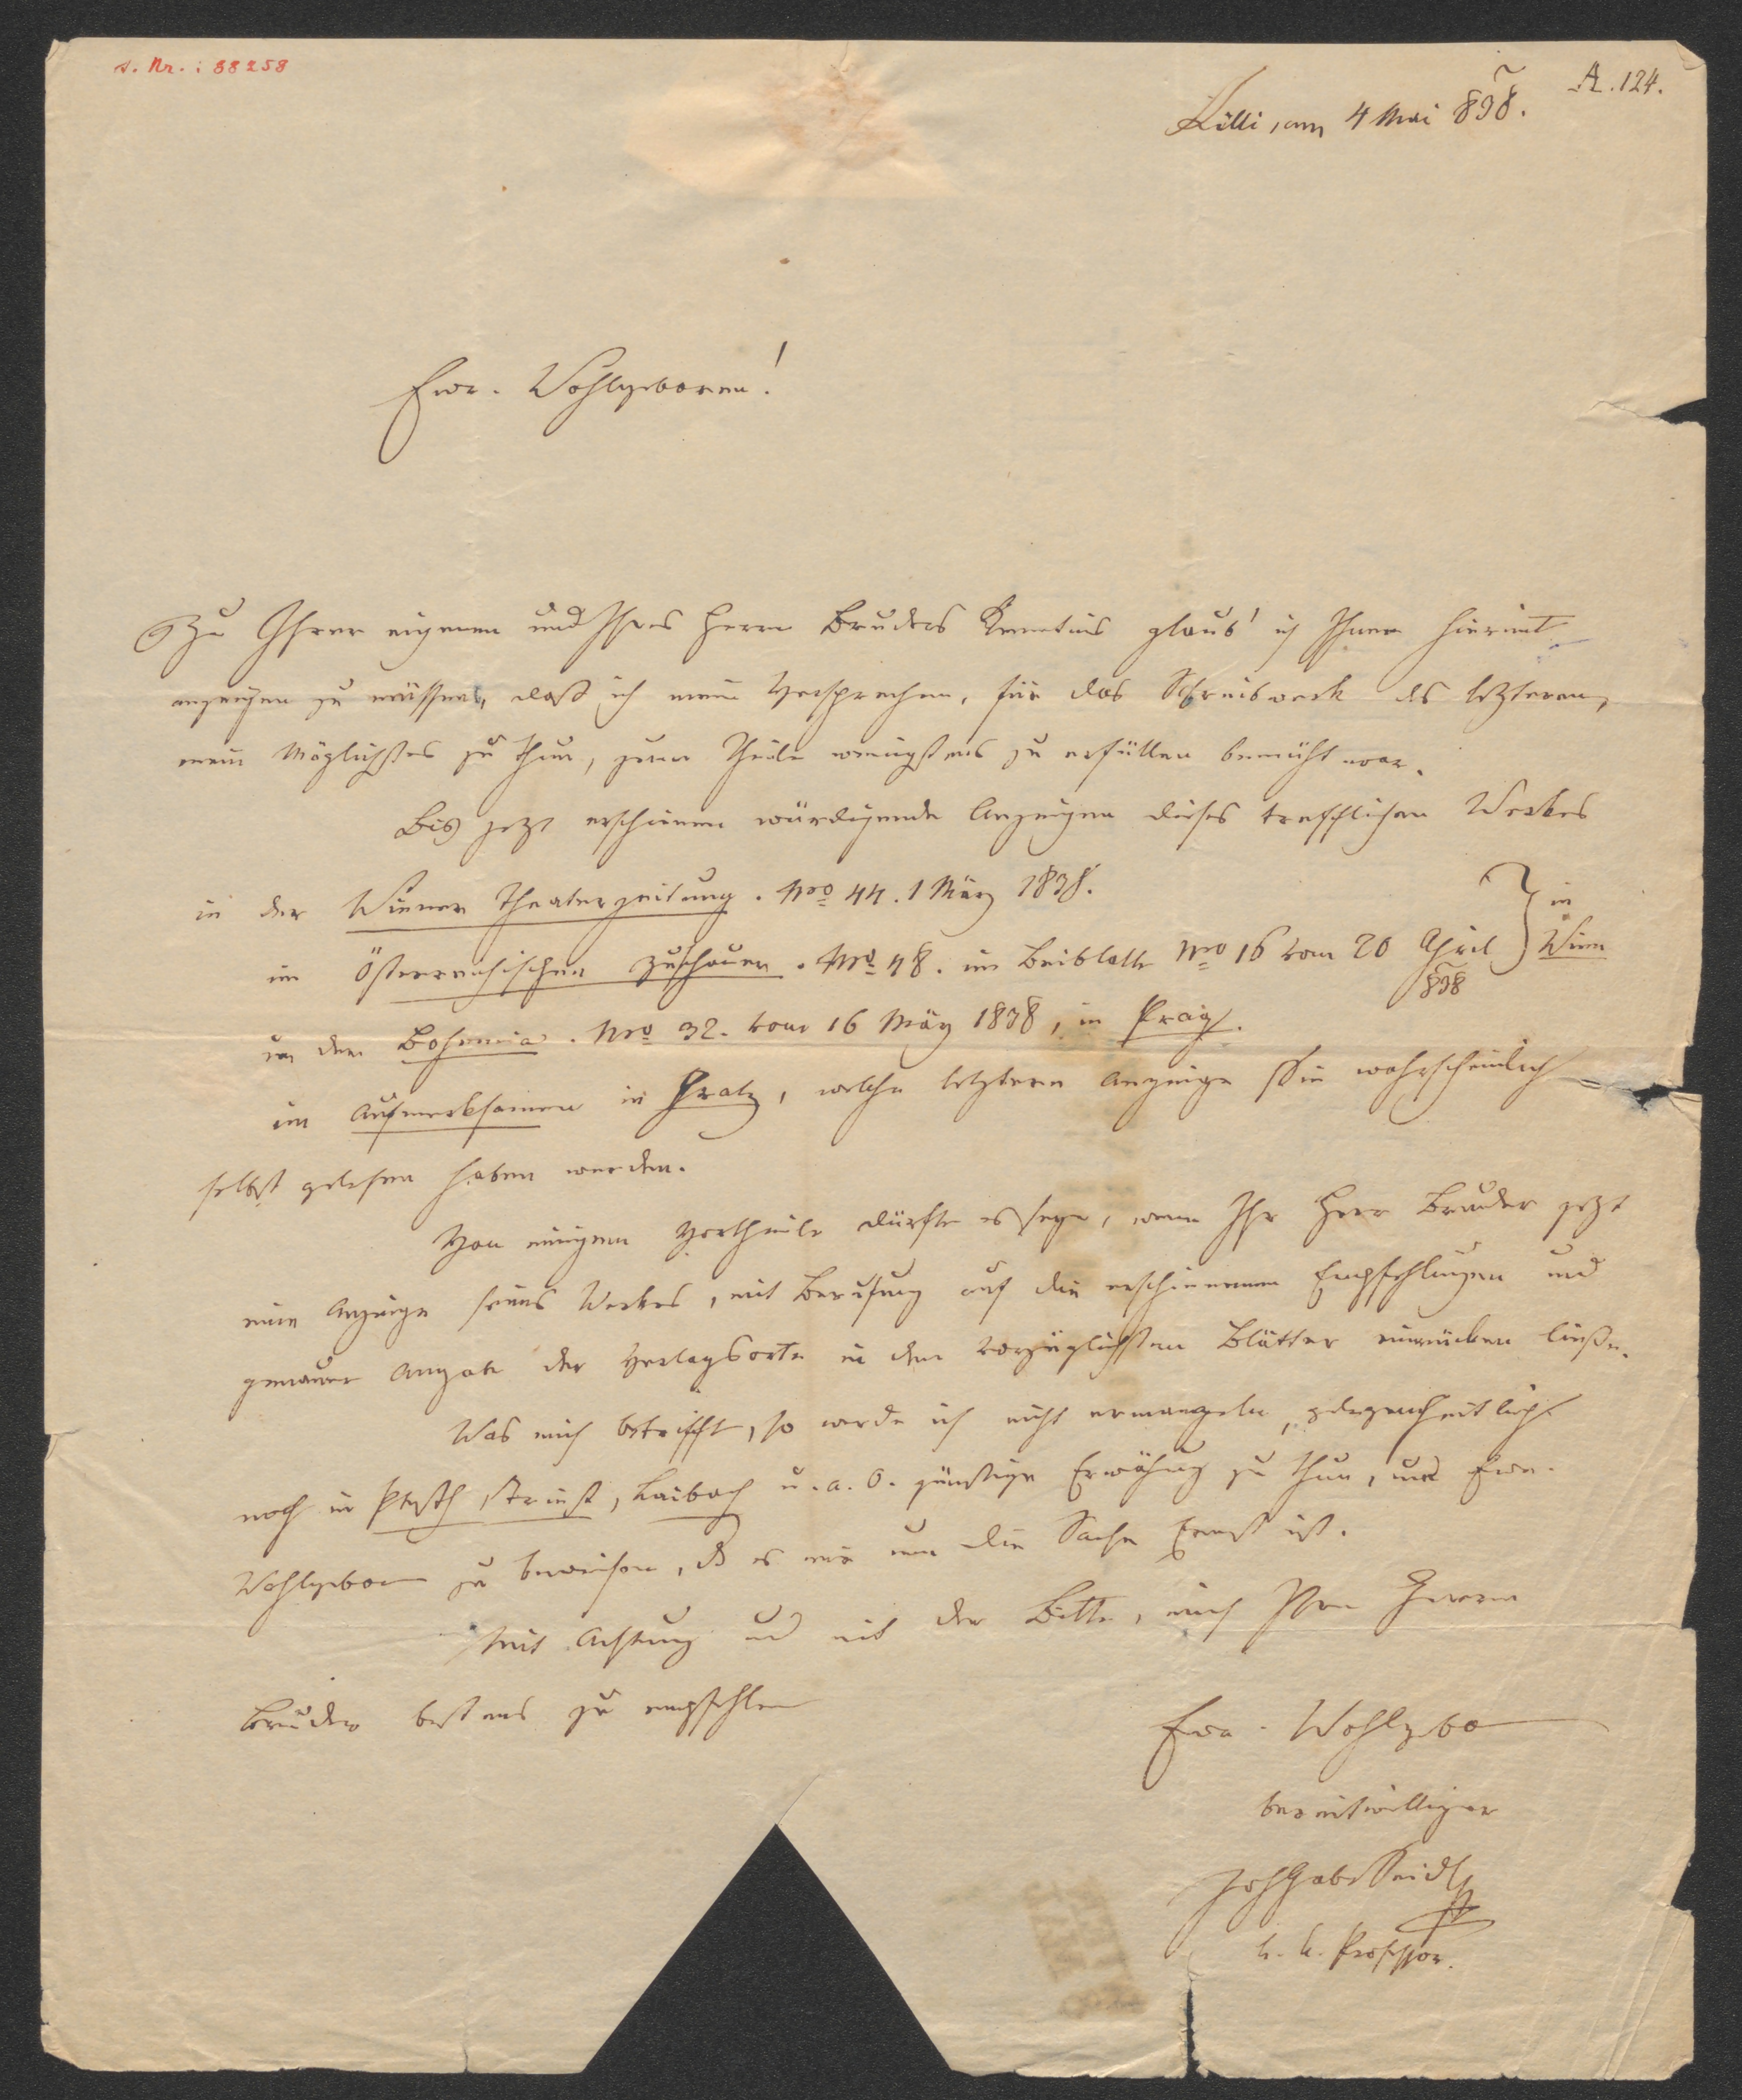 s. Nr.: 88258
A. 124.
Cilli, am 4 Mai 838.
Euer. Wohlgeboren!
Zu Ihrer eigenen und Ihres Herrn Bruders Kenntnis glaub' ich Ihnen hiermit
anzeigen zu müssen, daß ich mein Versprechen, für das Schreibwerk des letzteren,
mein Möglichstes zu thun, zum Theile wenigstens zu erfüllen bemüht war.
Bis jetzt erschienen würdigende Anzeigen dieses trefflichen Werkes
in der Wiener Theaterzeitung. Nro 44. 1 März 1838.
im Österreichischen Zuschauer. Nro 48. im Beiblatte Nro 16 vom 20 April 838 } in Wien
in der Bohemia. Nro 32. vom 16 März 1838, in Prag.
im Aufmerksamen in Gratz, welche letztere Anzeige Sie wahrscheinlich
selbst gelesen haben werden.
Von einigem Vortheile dürfte es seyn, wenn Ihr Herr Bruder jetzt
eine Anzeige seines Werkes, mit Berufung auf die erschienenen Empfehlungen und
genauer Angabe der Verlagsorte in den vorzüglichsten Blätter einrücken ließe.
Was mich betrifft, so werde ich nicht ermangeln, gelegenheitlich
noch in Pesth, Triest, Laibach u. a. O. günstige Erwähnung zu thun, und Euer.
Wohlgebor zu beweisen, dß es mir um die Sache Ernst ist.
Mit Achtung und mit der Bitte, mich Ihrem Herrn
Bruder bestens zu empfehlen
Euer. Wohlgebo
bereitwilliger
Joh Gab Seidl
k. k. Professor.